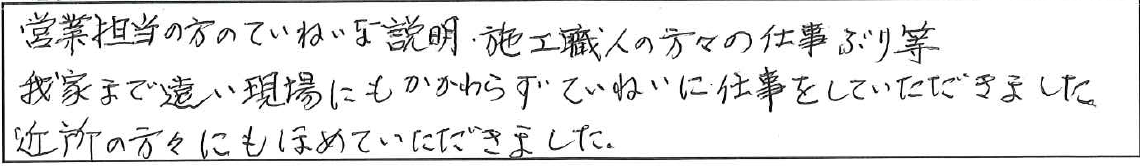 営業担当の方のていねいな説明・施工職人の方々の仕事ぶり等
我家まで遠い現場にもかかわらずていねいに仕事をしていただきました。
近所の方々にもほめていただきました。